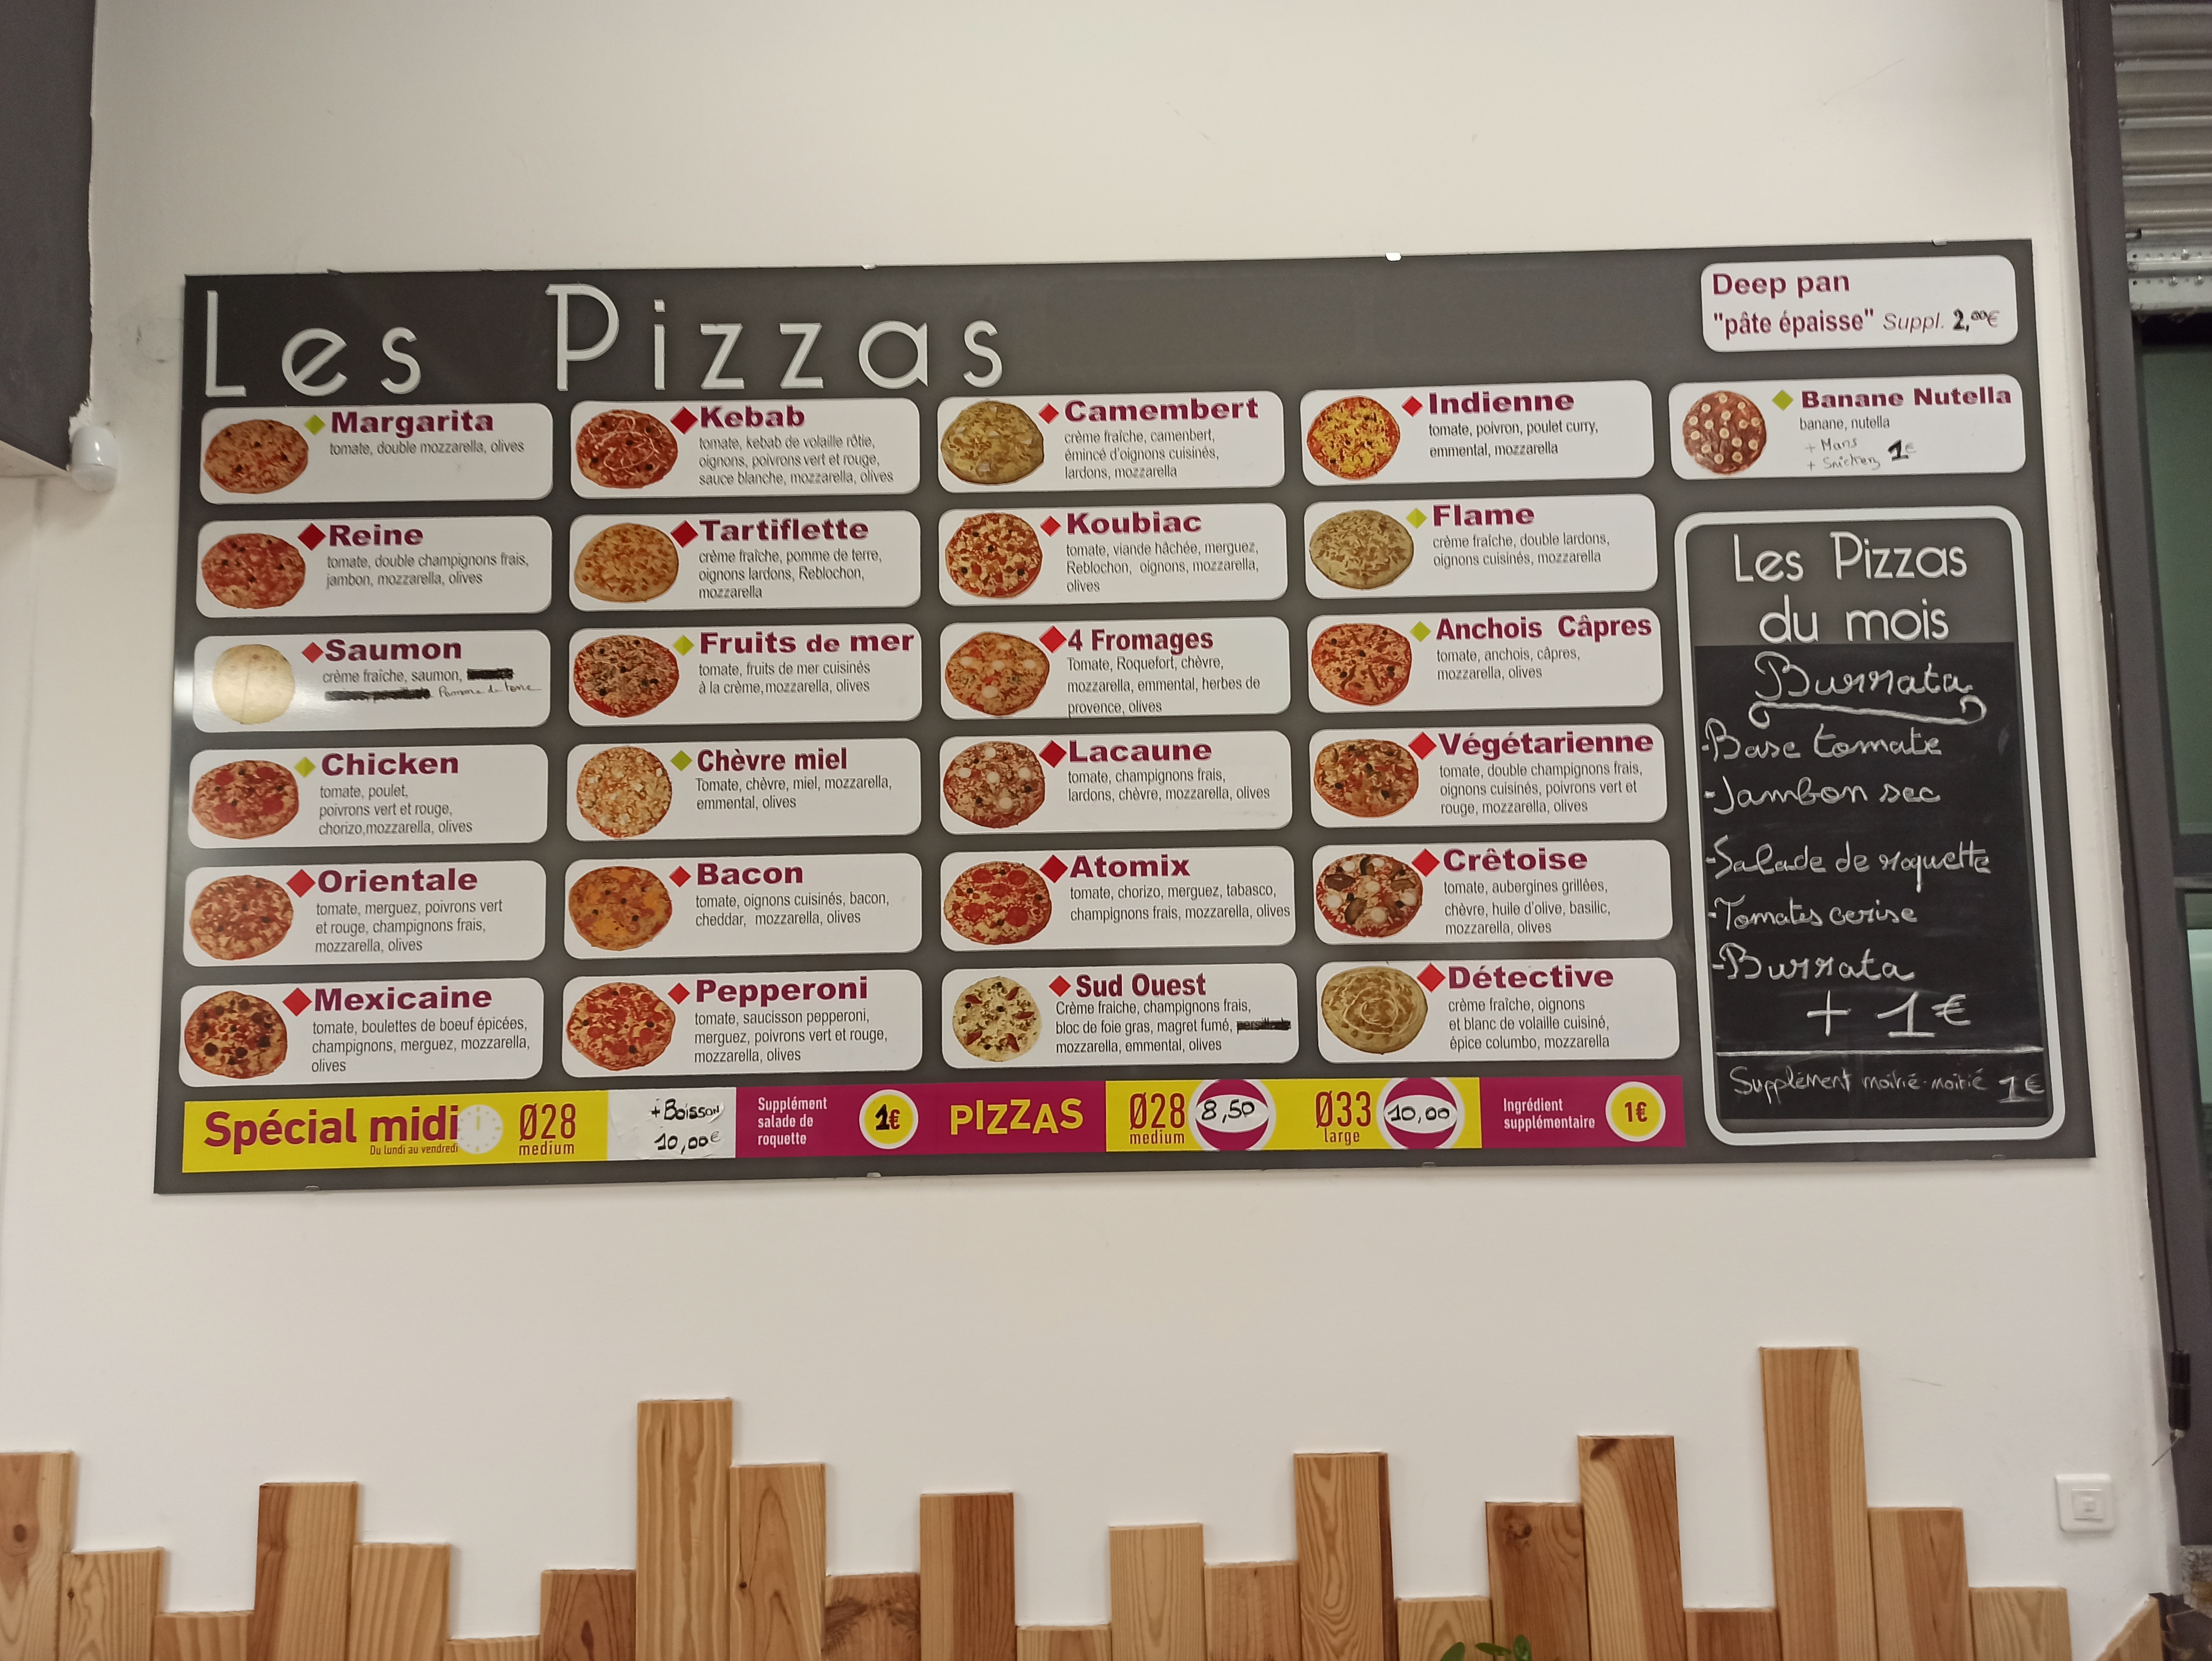 Les Pizzas
Deep pan
"pâte épaisse" Suppl. 2,00€
Margarita
tomate, double mozzarella, olives
Reine
tomate, double champignons frais,
jambon, mozzarella, olives
Saumon
crème fraîche, saumon,
Pomme de terre
Chicken
tomate, poulet,
poivrons vert et rouge,
chorizo,mozzarella, olives
Orientale
tomate, merguez, poivrons vert
et rouge, champignons frais,
mozzarella, olives
Mexicaine
tomate, boulettes de boeuf épicées,
champignons, merguez, mozzarella,
olives
Kebab
tomate, kebab de volaille rôtie,
oignons, poivrons vert et rouge,
sauce blanche, mozzarella, olives
Tartiflette
crème fraîche, pomme de terre,
oignons lardons, Reblochon,
mozzarella
Fruits de mer
tomate, fruits de mer cuisinés
à la crème,mozzarella, olives
Chèvre miel
Tomate, chèvre, miel, mozzarella,
emmental, olives
Bacon
tomate, oignons cuisinés, bacon,
cheddar, mozzarella, olives
Pepperoni
tomate, saucisson pepperoni,
merguez, poivrons vert et rouge,
mozzarella, olives
Camembert
crème fraîche, camenbert,
émincé d'oignons cuisinés,
lardons, mozzarella
Koubiac
tomate, viande hâchée, merguez,
Reblochon, oignons, mozzarella,
olives
4 Fromages
Tomate, Roquefort, chèvre,
mozzarella, emmental, herbes de
provence, olives
Lacaune
tomate, champignons frais,
lardons, chèvre, mozzarella, olives
Atomix
tomate, chorizo, merguez, tabasco,
champignons frais, mozzarella, olives
Sud Ouest
Crème fraiche, champignons frais,
bloc de foie gras, magret fumé,
mozzarella, emmental, olives
Indienne
tomate, poivron, poulet curry,
emmental, mozzarella
Flame
crème fraîche, double lardons,
oignons cuisinés, mozzarella
Anchois Câpres
tomate, anchois, câpres,
mozzarella, olives
Végétarienne
tomate, double champignons frais,
oignons cuisinés, poivrons vert et
rouge, mozzarella, olives
Crêtoise
tomate, aubergines grillées,
chèvre, huile d'olive, basilic,
mozzarella, olives
Détective
crème fraîche, oignons
et blanc de volaille cuisiné,
épice columbo, mozzarella
Banane Nutella
banane, nutella
+ Mars
+ Snickers 1€
Les Pizzas
du mois
Burrata
-Base tomate
-Jambon sec
-Salade de roquette
-Tomates cerise
-Burrata
+ 1€
Supplément moitié-moitié 1€
Spécial midi
Du lundi au vendredi
Ø28
medium
+Boisson
10,00€
Supplément
salade de
roquette
1€
PIZZAS
Ø28
medium
8,50
Ø33
large
10,00
Ingrédient
supplémentaire
1€